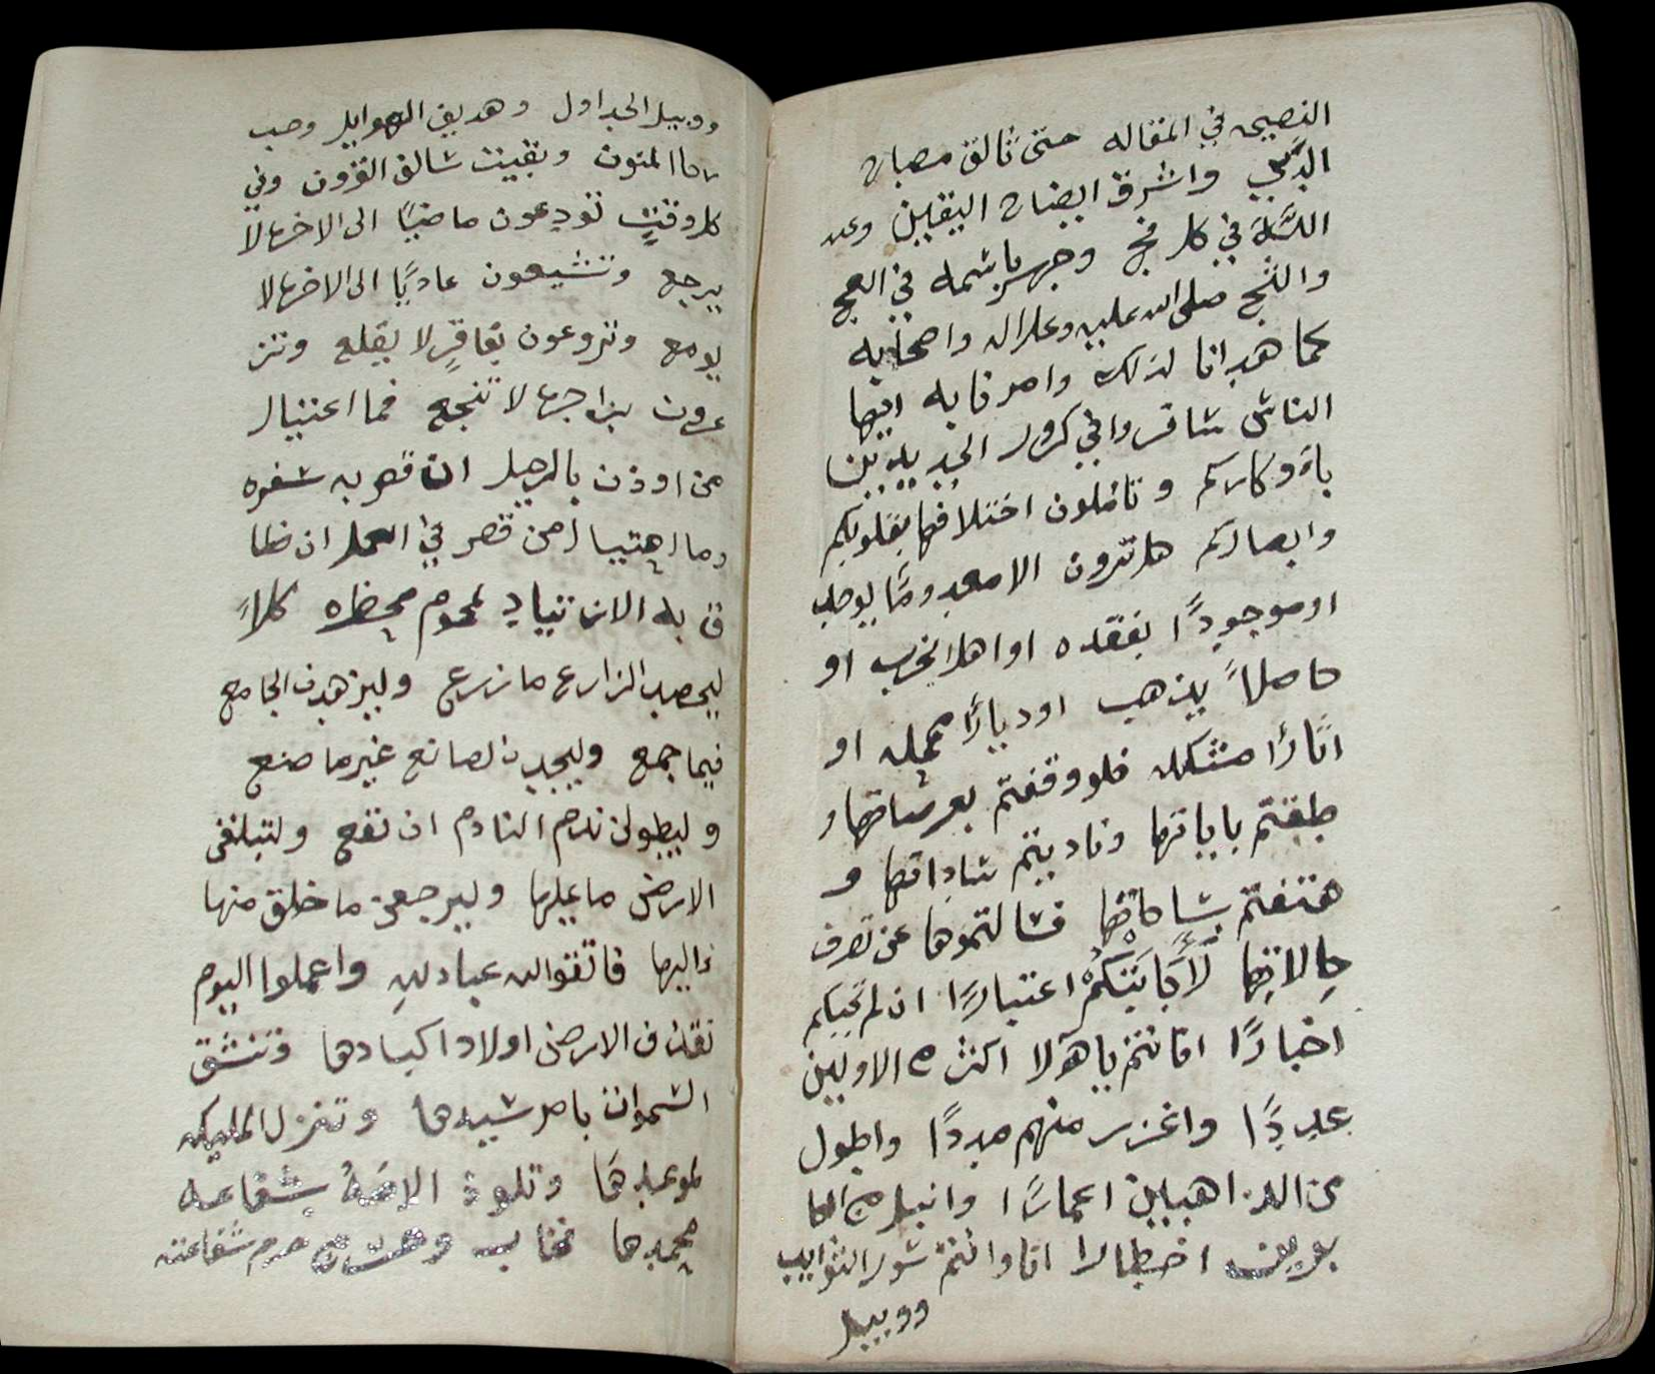 النصيحه في المقاله حتى تالق مصباح
الدين واشرق ايضاح اليقين وعبد
الله في كل فج وجهر باسمه في العج
والثج صلى الله عليه وعلى اله واصحابه
كما هدانا لذلك وامرنا به ايها
الناس سافروا في كرور الجديدين
بافكاركم وتاملون اختلافها بقلوبكم
وابصاركم هل ترون الا معدوما يوجد
او موجودًا يفقد او اهلا يخرب او
حاصلاً يذهب او ديارًا ممحله او
اثارًا مشكله فلو وقفتم بعرصاتها و
طفتم باياتها وناديتم ساداتها و
هتفتم بساحاتها فسالتموها عن تصرف
حالاتها لَأَجَابَتْكُمْ اعتبارًا ان لم تجبكم
اخبارًا افانتم ياهولا اكثر من الاولين
عددًا واغزر منهم مددًا واطول
من الذاهبين اعمارًا وانبل من
اخطارا افا وانتم سور النوايب
ووبيل
ووبيل الجداول وهديف الهوايل وصب
رحا المنون وبقيت سالف القرون وفي
كل وقتٍ تودعون ماضيًا الى الاخرة لا
يرجع وتشيعون غاديًا الى الاخرة لا
يومع وتروعون بفاقرٍ لا يقلع وتز
عرون بزاجرها لا تنجع فما اعتيال
من اوذن بالرحيل ان قصر به سفره
وما اهتيال من قصر في العمل ان ظا
ق به الارتياد لمحوم محظره كلاً
ليحصد الزارع ما زرع وليزهدن الجامع
فيما جمع وليجدن الصانع غير ما صنع
وليطولن ندم النادم ان نفع ولتبلغن
الارض ما عليها وليرجعن ما خلق منها
اليها فاتقوا الله عباد الله واعملوا ليوم
تقذف الارض اولاد اكبادها وتنشق
السموات بامر سيدها وتنزل المليكه
لموعدها وتلوذ الامَةُ بشفاعه
محمدها فخاب من حرم شفاعته